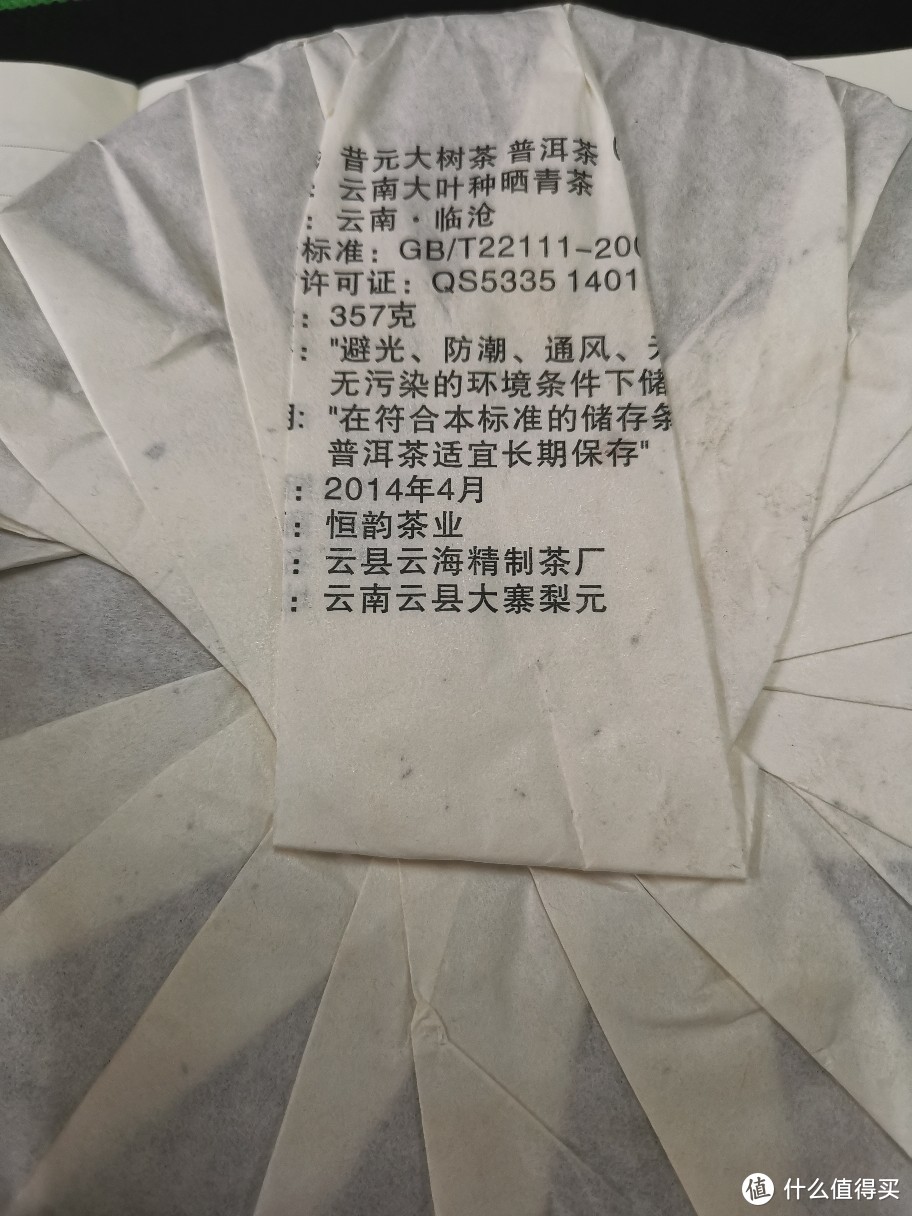 昔元大树茶 普洱茶（
：云南大叶种晒青茶
：云南·临沧
标准：GB/T22111-200
许可证：QS5335 1401
：357克
："避光、防潮、通风、
无污染的环境条件下储
："在符合本标准的储存条
普洱茶适宜长期保存"
：2014年4月
：恒韵茶业
：云县云海精制茶厂
：云南云县大寨梨元
值 什么值得买